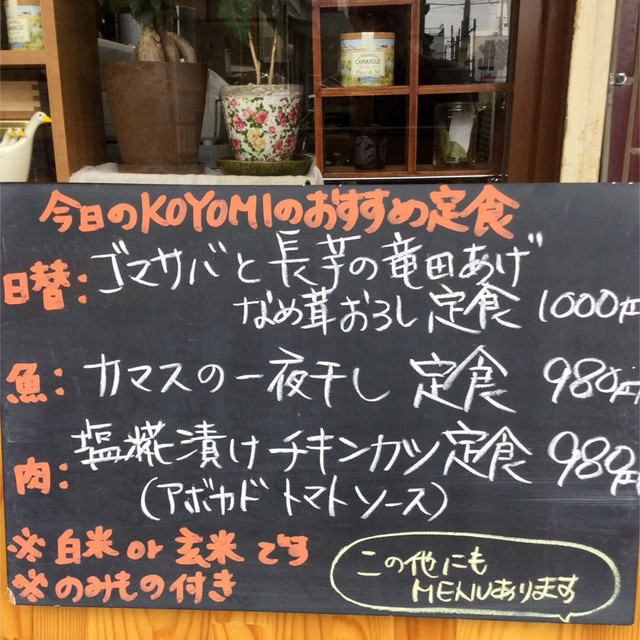 CAMARGUE
今日のKOYOMIのおすすめ定食
日替: ゴマサバと長芋の竜田あげ
なめ茸おろし 定食 1000円
魚: カマスの一夜干し 定食 980円
肉: 塩糀漬けチキンカツ定食 980円
(アボカド トマトソース)
※ 白米 or 玄米 です
※ のみもの付き
この他にも
MENUあります